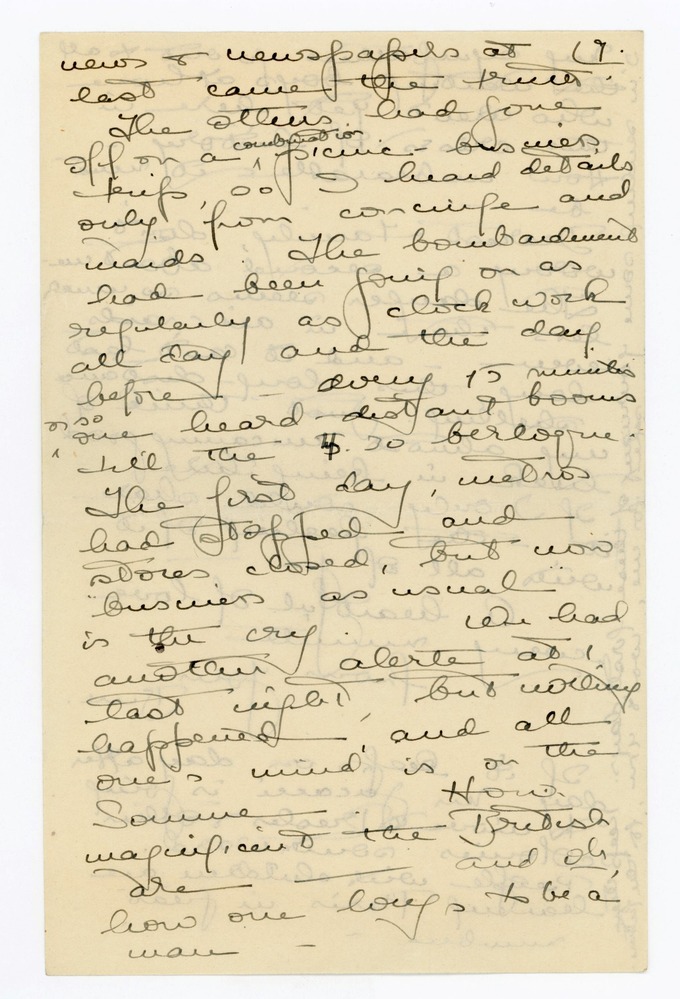 news & newspapers at (7.
last came the truth.
The others had gone
combination
off on a ^ picnic - business
trip, so I heard details
only from concierge and
maids. The bombardment
had been going on as
regularly as clock work
all day and the day
before - every 15 minutes
or so
^ one heard distant booms
till the 4.30 berloque.
The first day, metros
had stopped and
stores closed, but now
"business as usual"
is the cry. We had
another alerte at 1
last night, but nothing
happened, and all
one's mind is on the
Somme. How
magnificent the British
are — and oh,
how one longs to be a
man -